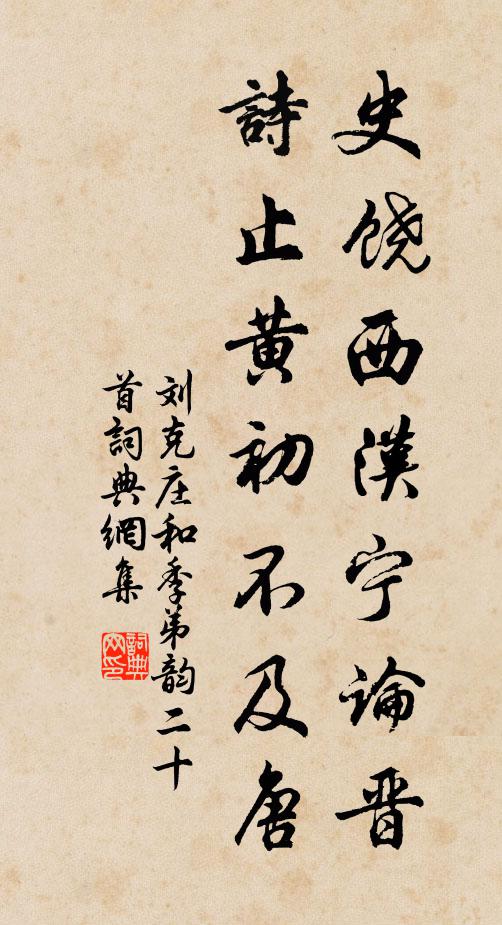 史饶西漢宁論晋
詩止黄初不及唐
刘克庄和季弟韵二十
首詞典網集
詞典网印